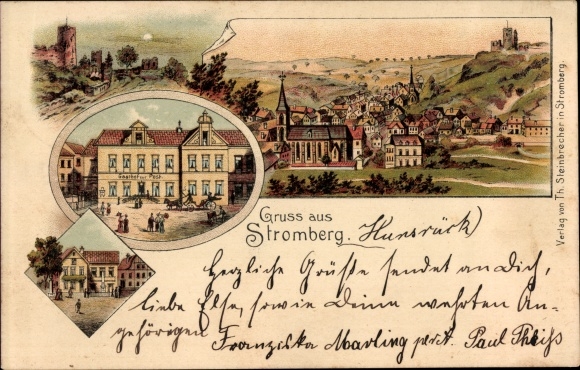 Gasthof zur Post
Gruss aus
Stromberg. (Hunsrück)
Herzliche Grüße sendet an Dich,
liebe Else, sowie Deine werthen An-
gehörigen Franziska Marling Paul
Verlag von Th. Steinbrecher in Stromberg.